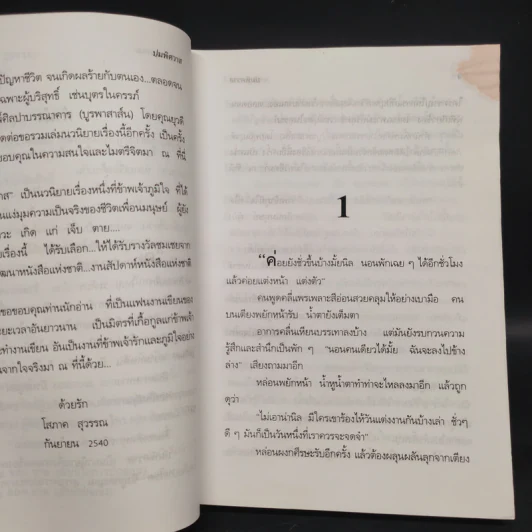 ปมพิศวาส
ปัญหาชีวิต จนเกิดผลร้ายกับตนเอง...ตลอดจน
เฉพาะผู้บริสุทธิ์ เช่นบุตรในครรภ์
ศิลปาบรรณาคาร (บูรพาสาส์น) โดยคุณยุวดี
ติดต่อขอรวมเล่มนวนิยายเรื่องนี้อีกครั้ง เป็นครั้ง
ขอบคุณในความสนใจและไมตรีจิตมา ณ ที่นี้
เป็นนวนิยายเรื่องหนึ่งที่ข้าพเจ้าภูมิใจ ที่ได้
แง่มุมความเป็นจริงของชีวิตเพื่อนมนุษย์
เกิด แก่ เจ็บ ตาย....
เรื่องนี้ ได้รับเลือก...ให้ได้รับรางวัลชมเชยจาก
พัฒนาหนังสือแห่งชาติ...งานสัปดาห์หนังสือแห่งชาติ
ขอขอบคุณท่านนักอ่าน ที่เป็นแฟนงานเขียนของ
ระยะเวลาอันยาวนาน เป็นมิตรที่เกื้อกูลแก่ข้าพเจ้า
ทำงานเขียน อันเป็นงานที่ข้าพเจ้ารักและภูมิใจอย่าง
จากใจจริงมา ณ ที่นี้ด้วย...
ด้วยรัก
โสภาค สุวรรณ
กันยายน 2540
1
“ค่อยยังชั่วขึ้นบ้างมั้ยนิล นอนพักเฉย ๆ ได้อีกชั่วโมง
แล้วค่อยแต่งหน้า แต่งตัว”
คนพูดคลี่แพรเพลาะสีอ่อนสวยคลุมให้อย่างเบามือ คน
บนเตียงพยักหน้ารับ น้ำตายังเต็มตา
อาการคลื่นเหียนบรรเทาลงบ้าง แต่มันยังรบกวนความ
รู้สึกและสำนึกเป็นพัก ๆ “นอนคนเดียวได้มั้ย ฉันจะลงไปข้าง
ล่าง” เสียงถามมาอีก
หล่อนพยักหน้า น้ำหูน้ำตาทำท่าจะไหลลงมาอีก แล้วถูก
ดุว่า
“ไม่เอาน่านิล มีใครเขาร้องไห้วันแต่งงานกันบ้างเล่า ชั่วๆ
ดี ๆ มันก็เป็นวันหนึ่งที่เราควรจะจดจำ”
หล่อนผงกศีรษะรับอีกครั้ง แล้วต้องผลุนผลันลุกจากเตียง